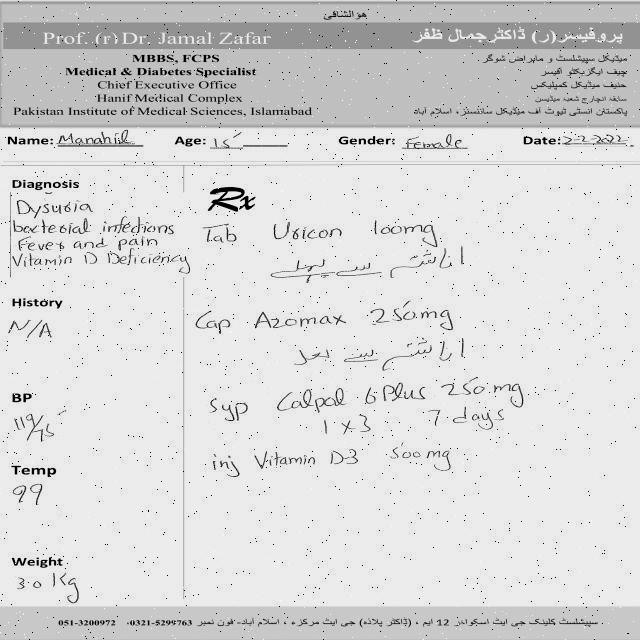 هوالشافی
Prof. (r) Dr. Jamal Zafar
پروفیسر(ر) ڈاکٹرجمال ظفر
MBBS, FCPS
Medical & Diabetes Specialist
Chief Executive Office
Hanif Medical Complex
Pakistan Institute of Medical Sciences, Islamabad
میڈیکل سپیشلسٹ و ماہرامراض شوگر
چیف ایگزیکٹو آفیسر
حنیف میڈیکل کمپلیکس
سابقہ انچارج شعبہ میڈیسن
پاکستان انسٹی ٹیوٹ آف میڈیکل سائنسز، اسلام آباد
Name: Manahil Age: 15 Gender: Female Date: 2-2-2022
Diagnosis
Dysuria
bacterial infections
Fever and pain
Vitamin D Deficiency
History
N/A
BP
119/75
Temp
99
Weight
30 Kg
Rx
Tab Uricon 100mg
1 ناشتہ سے پہلے
Cap Azomax 250mg
1 ناشتہ سے بعد
Syp Calpol 6 Plus 250mg
1 x 3 7 days
inj Vitamin D3 500mg
سپیشلسٹ کلینک جی ایٹ اسکوائر 12 ایم ، (ڈاکٹر پلازہ) جی ایٹ مرکزہ ، اسلام آباد- فون نمبر 0321-5299763، 051-3200972